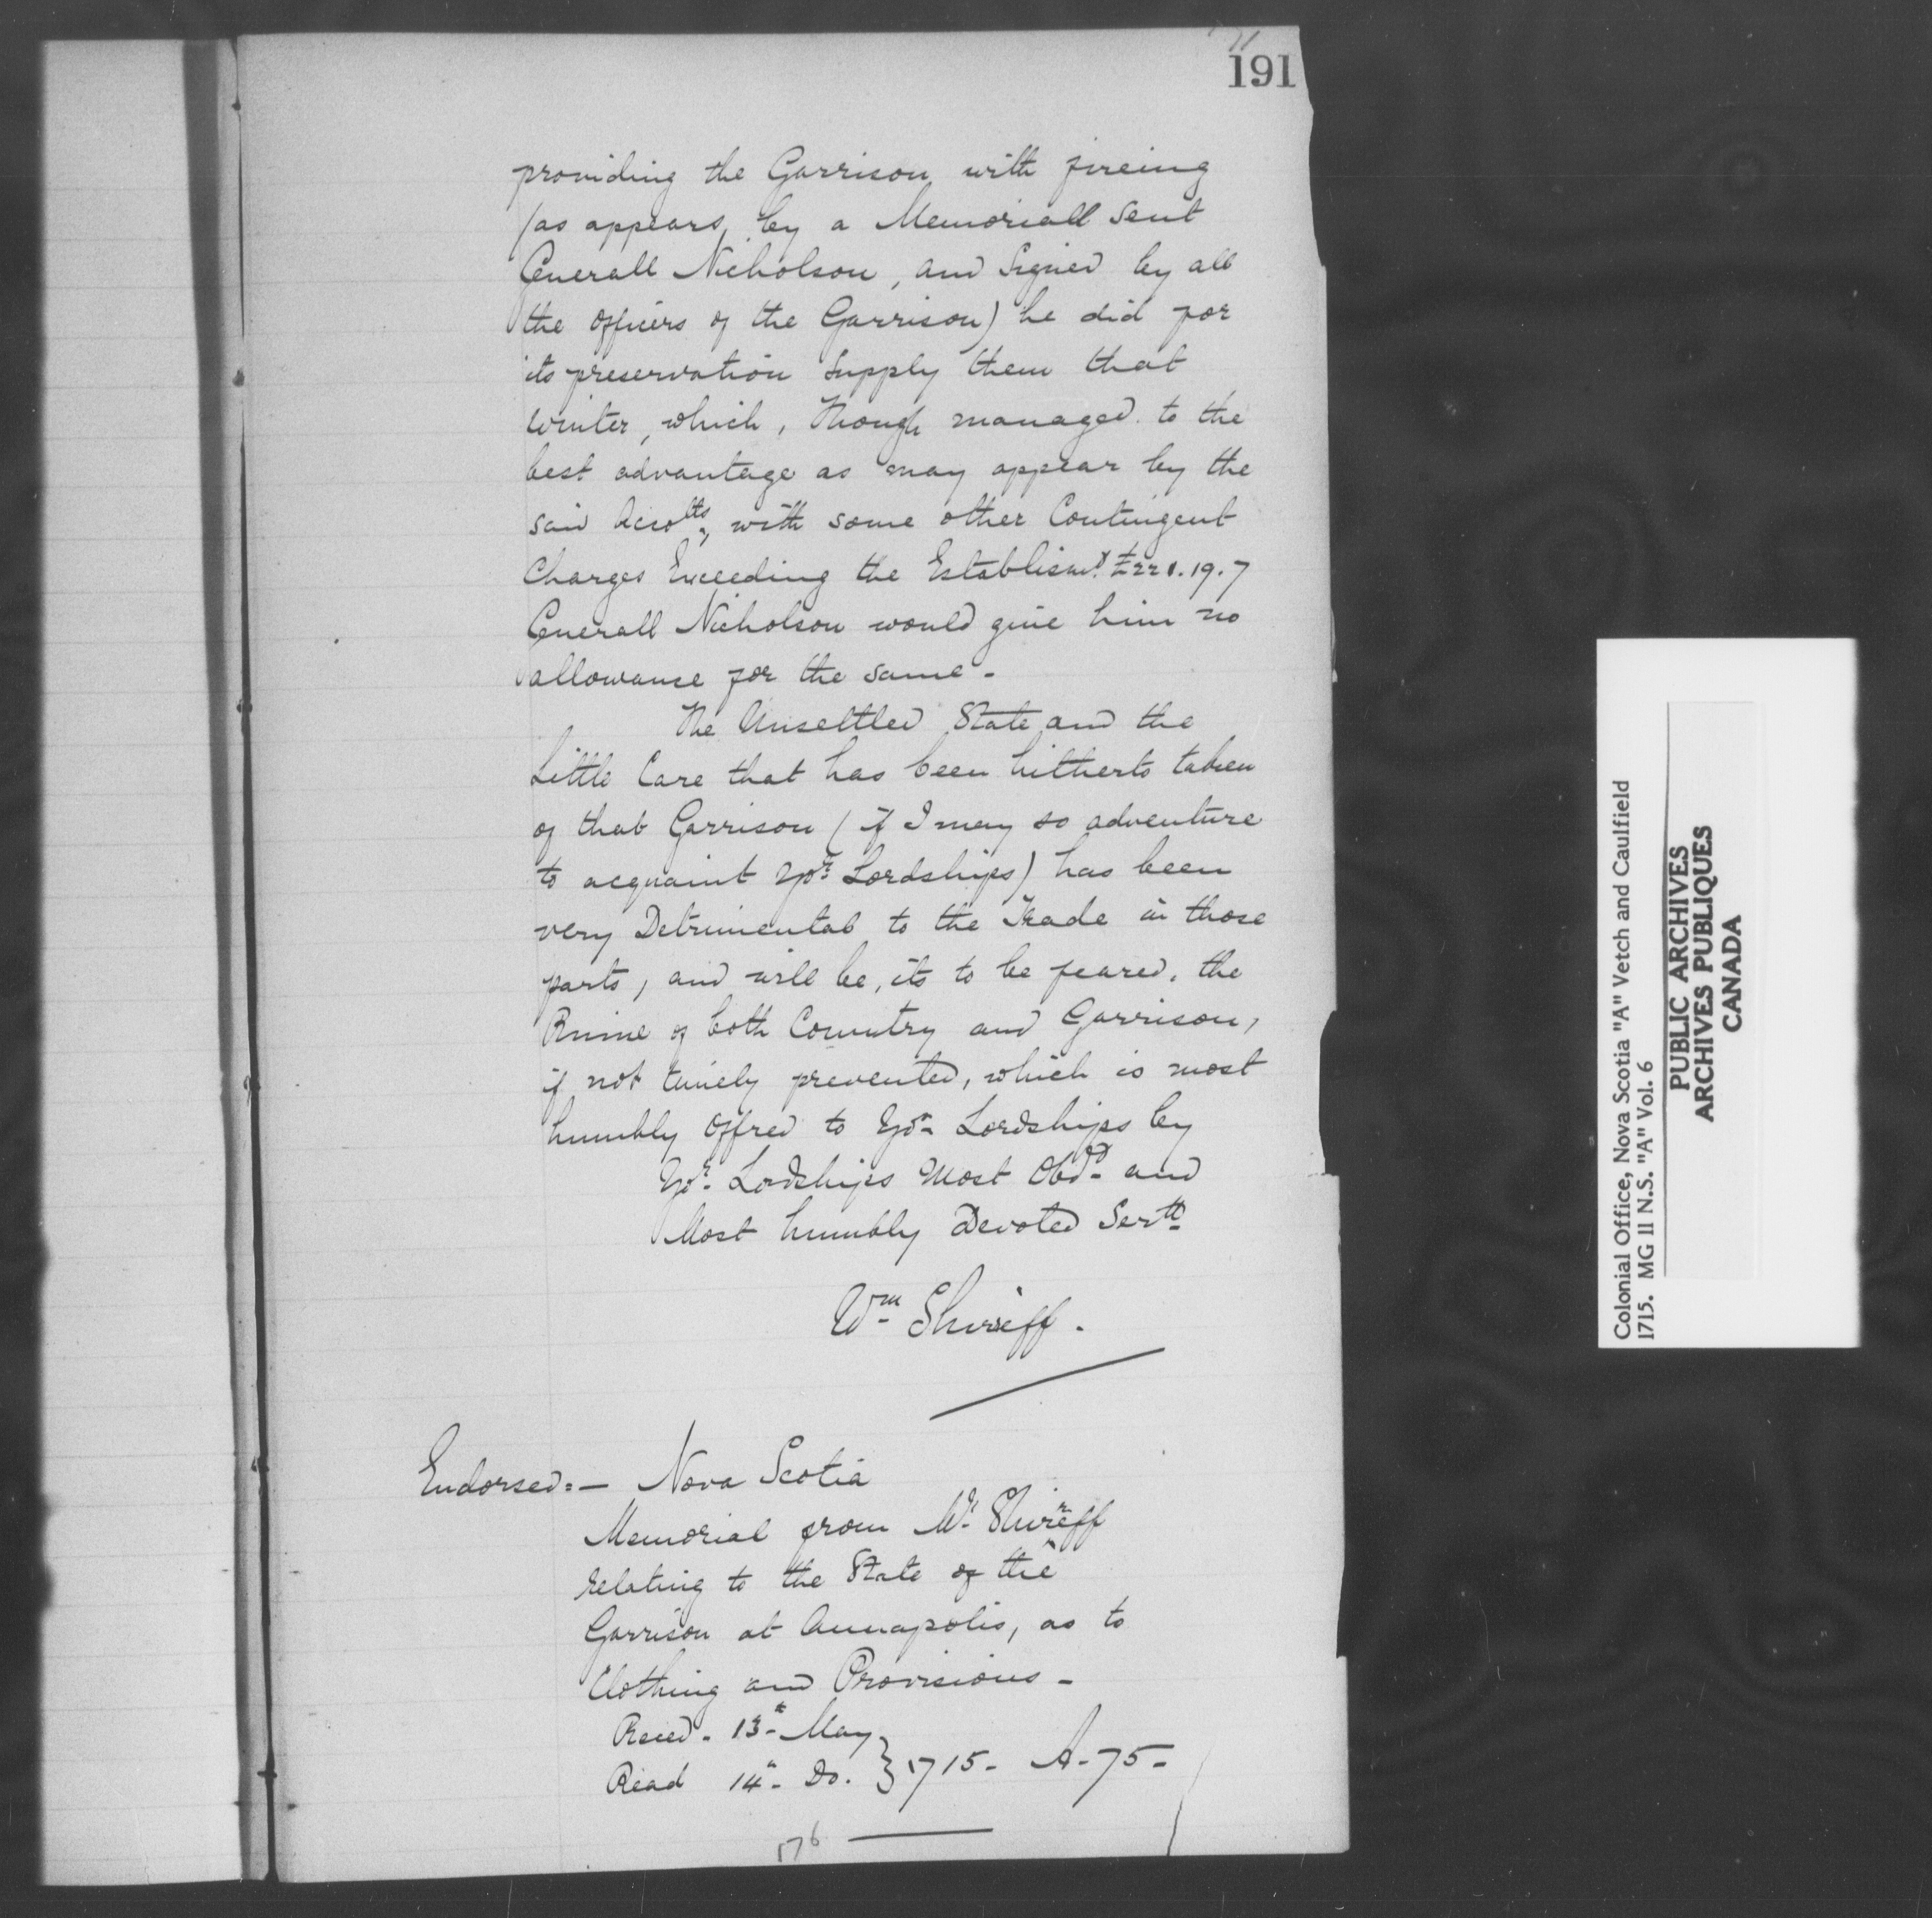 191
providing the Garrison with fireing
(as appears by a Memoriall sent
Generall Nicholson, and Signed by all
the Officers of the Garrison) he did for
its preservation supply them that
winter, which, though managed to the
best advantage as may appear by the
said Acco.tts, with some other Contingent
Charges Exceeding the Establism.t £221.19.7
Generall Nicholson would give him no
allowance for the same -
The Unsettled State and the
Little Care that has been hitherto taken
of that Garrison (if I may so adventure
to acquaint Yo.r Lordships) has been
very Detrimental to the Trade in those
parts, and will be, its to be feared, the
Ruine of both Country and Garrison,
if not timely prevented, which is most
humbly Offred to Yo.r Lordships by
Yo.r Lordships Most Obd.t and
Most humbly Devoted Ser.tt
Wm Shirreff.
Endorsed:- Nova Scotia
Memorial from Mr. Shirreff
relating to the State of the
Garrison at Annapolis, as to
Clothing and Provisions -
Reced. 13th May
Read 14th Do. } 1715 - A-75-
176
Colonial Office, Nova Scotia "A" Vetch and Caulfield
1715. MG 11 N.S. "A" Vol. 6
PUBLIC ARCHIVES
ARCHIVES PUBLIQUES
CANADA